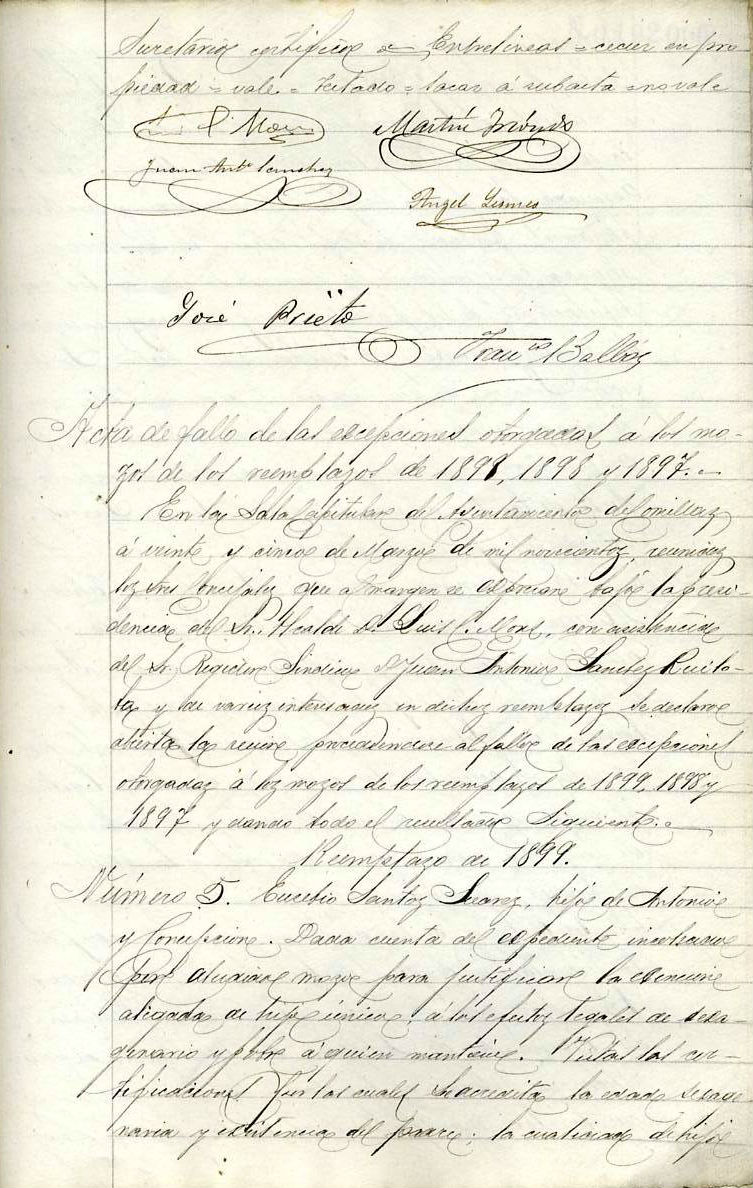 Secretario certifico = Entrelineas = ceder en pro
piedad = vale = Testado = sacar á subasta = no vale
Luis C. Mon Martín
Juan Antº Sanchez
Angel
José Prieto
Franco Balbín
Acta de fallo de las excepciones otorgadas á los mo-
zos de los reemplazos de 1899, 1898 y 1897.=
En la Sala Capitular del Ayuntamiento de
á veinte y cinco de Marzo de mil novecientos, reunidos
los Sres Concejales que al margen se expresan bajo la presi-
dencia del Sr. Alcalde D. Luis C. Mon, con asistencia
del Sr. Regidor Sindico D. Juan Antonio Sanchez Ruilo-
ba y de varios interesados en dichos reemplazos se declaró
abierta la sesion procediendose al fallo de las excepciones
otorgadas á los mozos de los reemplazos de 1899, 1898 y
1897 y dando todo el resultado siguiente.=
Reemplazo de 1899.
Número 5. Eusebio Santos Suarez, hijo de Antonio
y Concepcion. Dada cuenta del expediente incohado
por aludido mozo para justificar la exencion
alegada de hijo único, á los efectos legales de sexa-
genario y pobre á quien mantiene. Vistas las cer-
tificaciones por las cuales se acredita la edad sexage-
naria y existencia del padre; la cualidad de hijo